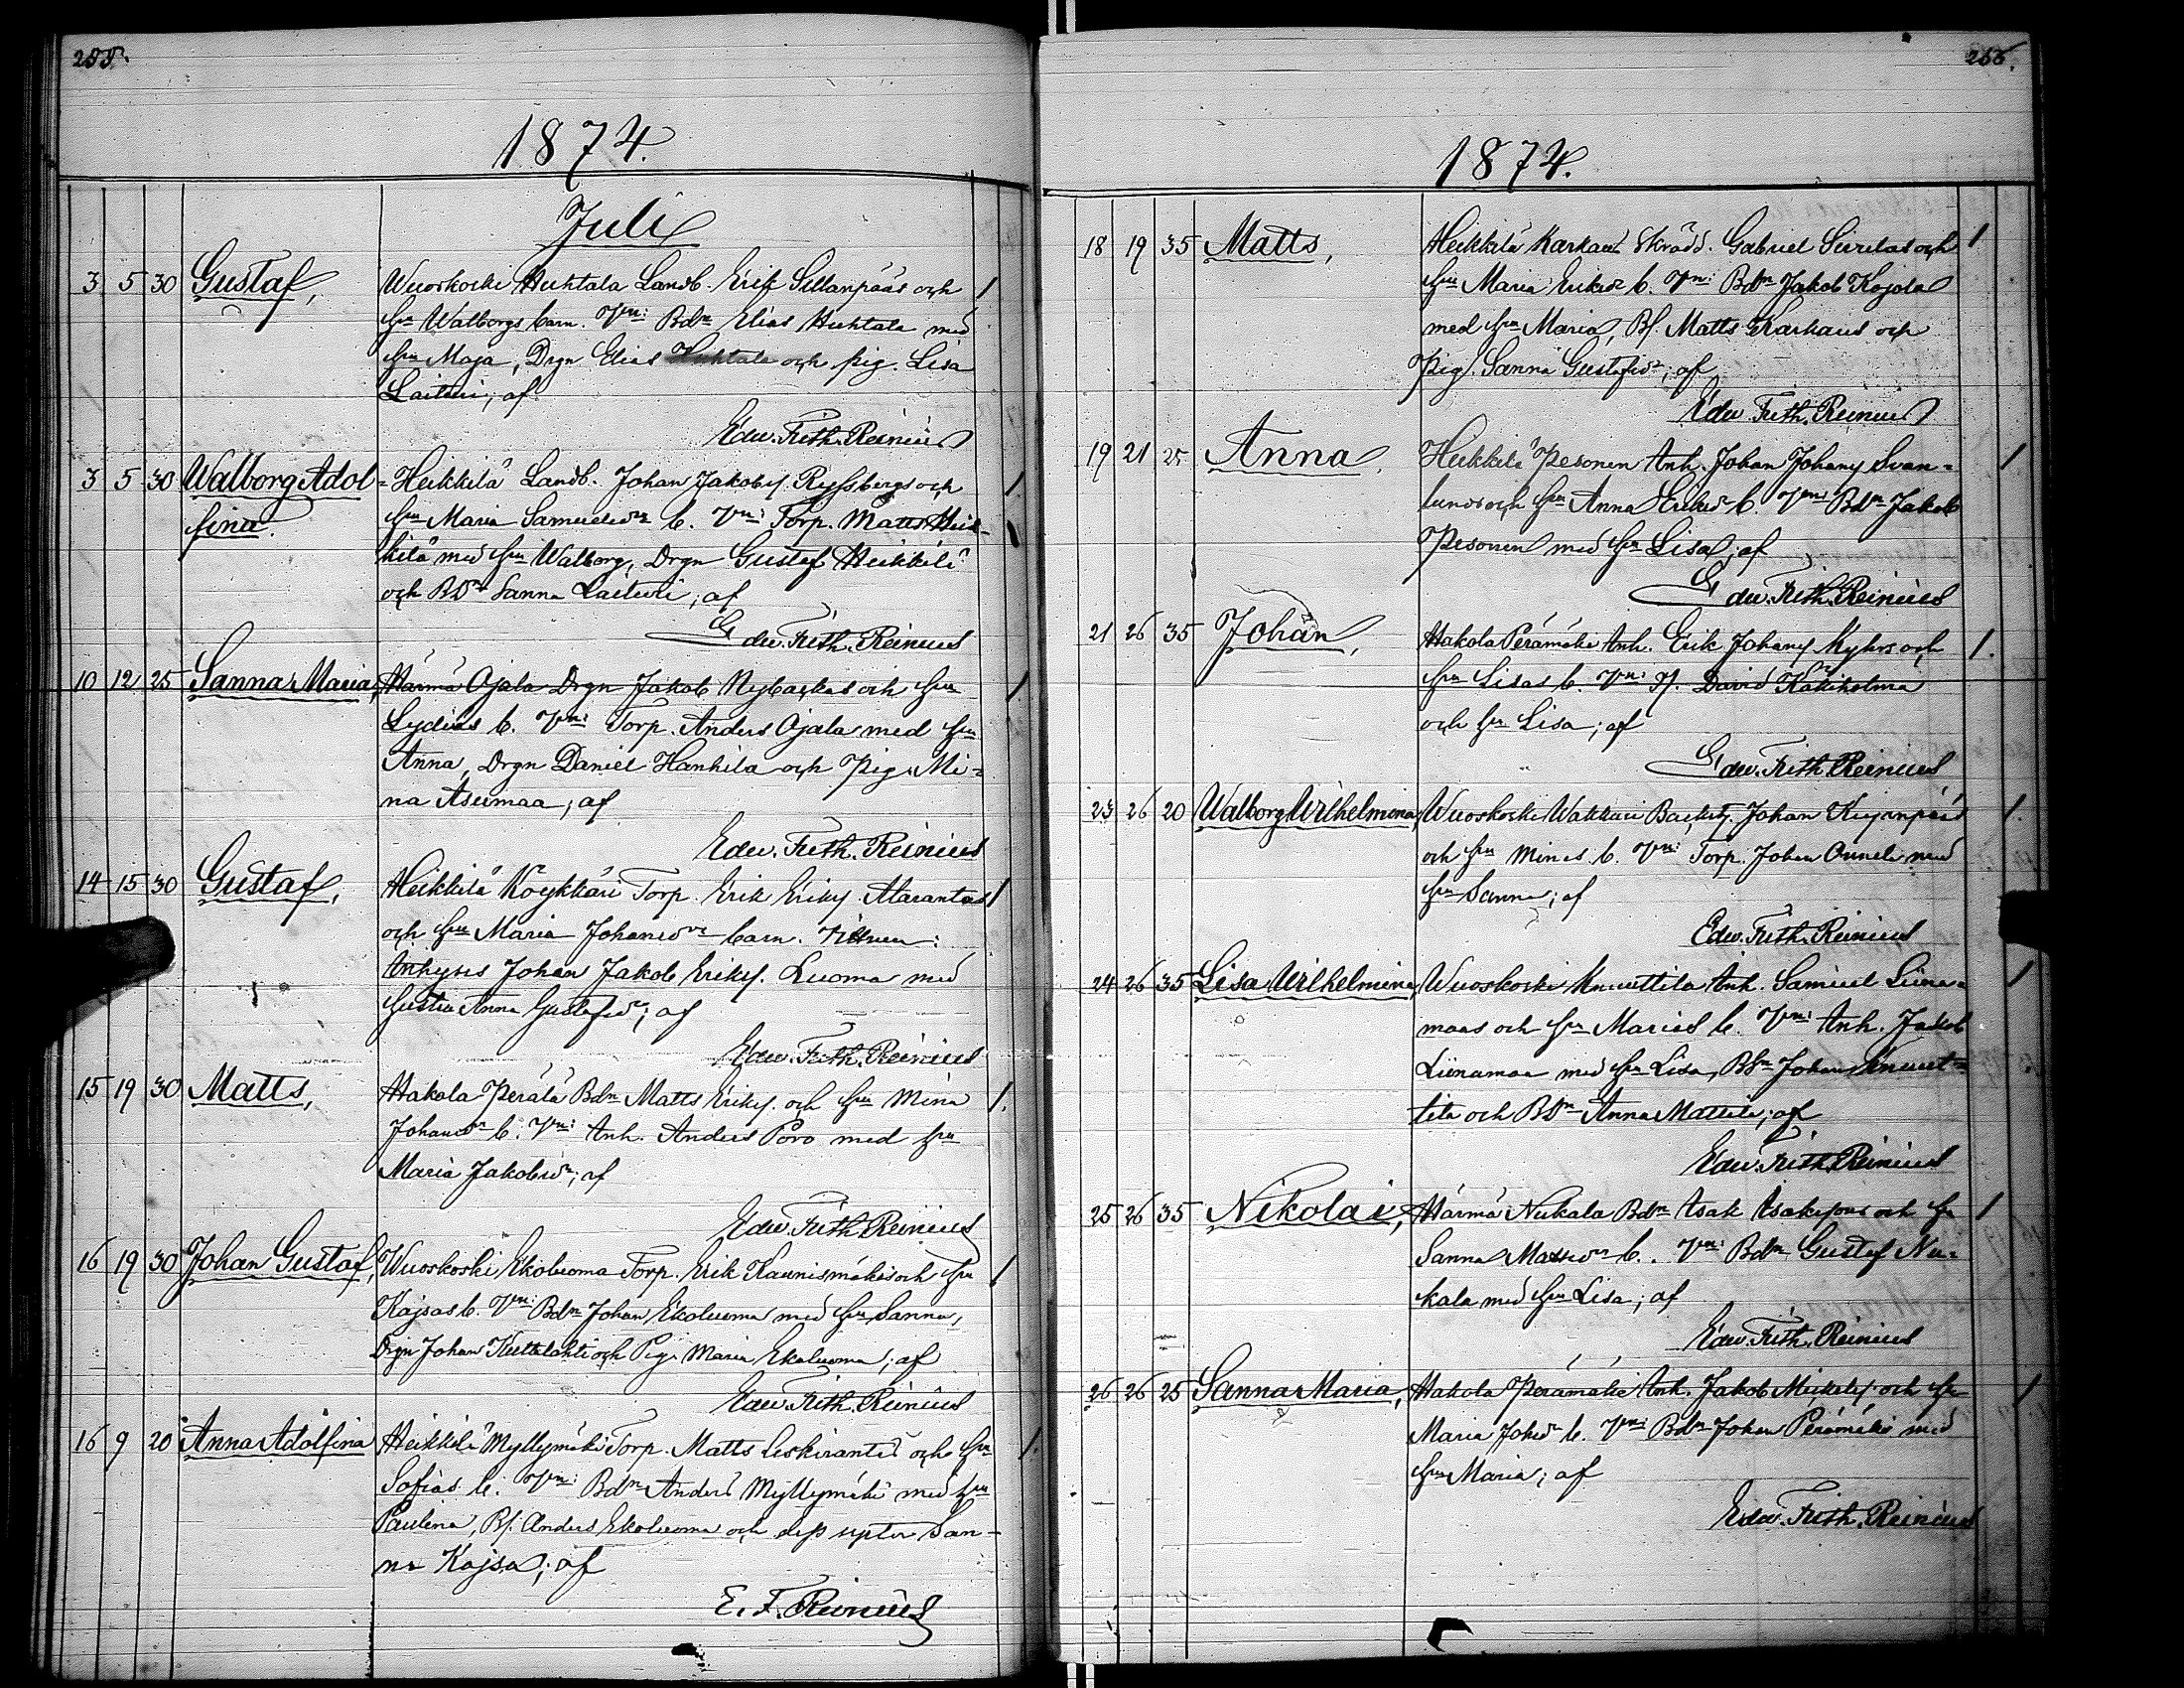 255.
1874.
Juli
3 5 30 Gustaf, Wuoskoski Huhtala Landb. Erik Sillanpääs och
hu Walborgs barn. Vn: Bdn Elias Huhtala med
hu Maja, Drgn Elias Huhtala och pig. Lisa
Laituri; af
Edw. Frith. Reinius
3 5 30 Walborg Adol= Heikkilä Landb. Johan Jakobss. Ryssbergs och
fina. hu Maria Samuelsdr b. Vn: Torp. Matts Heik-
kilä med hu Walborg, Drgn Gustaf Heikkilä
och BDr Sanna Laituri; af
Edw. Frith. Reinius
10 12 25 Sanna Maria, Härmä Ojala Drgn Jakob Nybackas och hu
Lydias b. Vn: Torp. Anders Ojala med hu
Anna, Drgn Daniel Hanhila och Pig. Mi=
na Asumaa; af
Edw. Frith. Reinius
14 15 30 Gustaf, Heikkilä Köykkäri Torp. Erik Erikss. Marantas
och hu Maria Johansdrs barn. Vittnen:
Inhyses Johan Jakob Erikss. Luoma med
hustru Anna Gustafsdr; af
Edw. Frith. Reinius
15 19 30 Matts, Hakola Perälä Bdn Matts Erikss. och hu Mina
Johansdr b. Vn: Inh. Anders Poro med hu
Maria Jakobsdr; af
Edw. Frith. Reinius
16 19 30 Johan Gustaf, Wuoskoski Ekoluoma Torp. Erik Kaunismäkis och hu
Kajsas b. Vn: Bdn Johan Ekoluoma med hu Sanna,
Drgn Johan Kultalahti och Pig. Maria Ekoluoma; af
Edw. Frith. Reinius
16 9 20 Anna Adolfina Heikkilä Myllymäki Torp. Matts Leskirantas och hu
Sofias b. Vn: Bdn Anders Myllymäki med hu
Paulina, Bs. Anders Ekoluoma och dess syster San-
na Kajsa; af
E. F. Reinius
256.
1874.
18 19 35 Matts, Heikkilä Karhaus Skrädd. Gabriel Siirilas och
hu Maria Eriksdr b. Vn: Bdn Jakob Kojola
med hu Maria, Bs. Matts Karhaus och
Pig. Sanna Gustafsdr; af
Edw. Frith. Reinius
19 21 25 Anna, Heikkilä Pesonen Inh. Johan Johanss. Svan=
lunds och hu Anna Eriksdr b. Vn: Bdn Jakob
Pesonen med hu Lisa; af
Edw. Frith. Reinius
21 26 35 Johan, Hakola Perämäki Inh. Erik Johanss. Myhrs och
hu Lisas b. Vn: David Kakiholma
och hu Lisa; af
Edw. Frith. Reinius
23 26 20 Walborg Wilhelmina, Wuoskoski Wakkuri Johan Kujanpääs
och hu Minas b. Vn: Torp. Johan Onnela med
hu Sanna; af
Edw. Frith. Reinius
24 26 35 Lisa Wilhelmina, Wuoskoski Knuuttila Inh. Samuel Liina=
maas och hu Marias b. Vn: Inh. Jakob
Liinamaa med hu Lisa, BSn Johan Knuut=
tila och BDr Anna Mattila; af
Edw. Frith. Reinius
25 26 35 Nikolai, Härmä Nukala Bdn Isak Isakssons och hu
Sanna Mattsdr b. Vn: Bdn Gustaf Nu=
kala med hu Lisa; af
Edw. Frith. Reinius
26 26 25 Sanna Maria, Hakola Perämäki Inh. Jakob Mickelss. och hu
Maria Johsdr b. Vn: Bdn Johan Perämäki med
hu Maria; af
Edw. Frith. Reinius